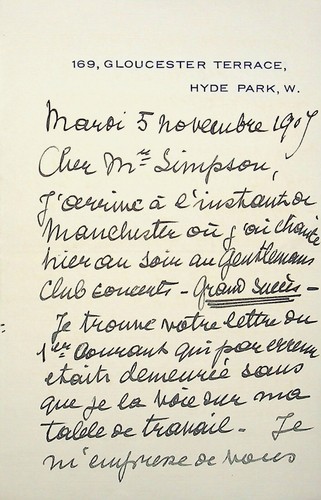 169, GLOUCESTER TERRACE,
HYDE PARK, W.
Mardi 5 novembre 1907
Cher Mr Simpson,
J'arrive à l'instant de
Manchester où j'ai chanté
hier au soir au Gentlemans
Club concerts - Grand succès -
Je trouve votre lettre du
1er courant qui par erreur
etait demeurée sans
que je la voie sur ma
table de travail - Je
m'empresse de vous